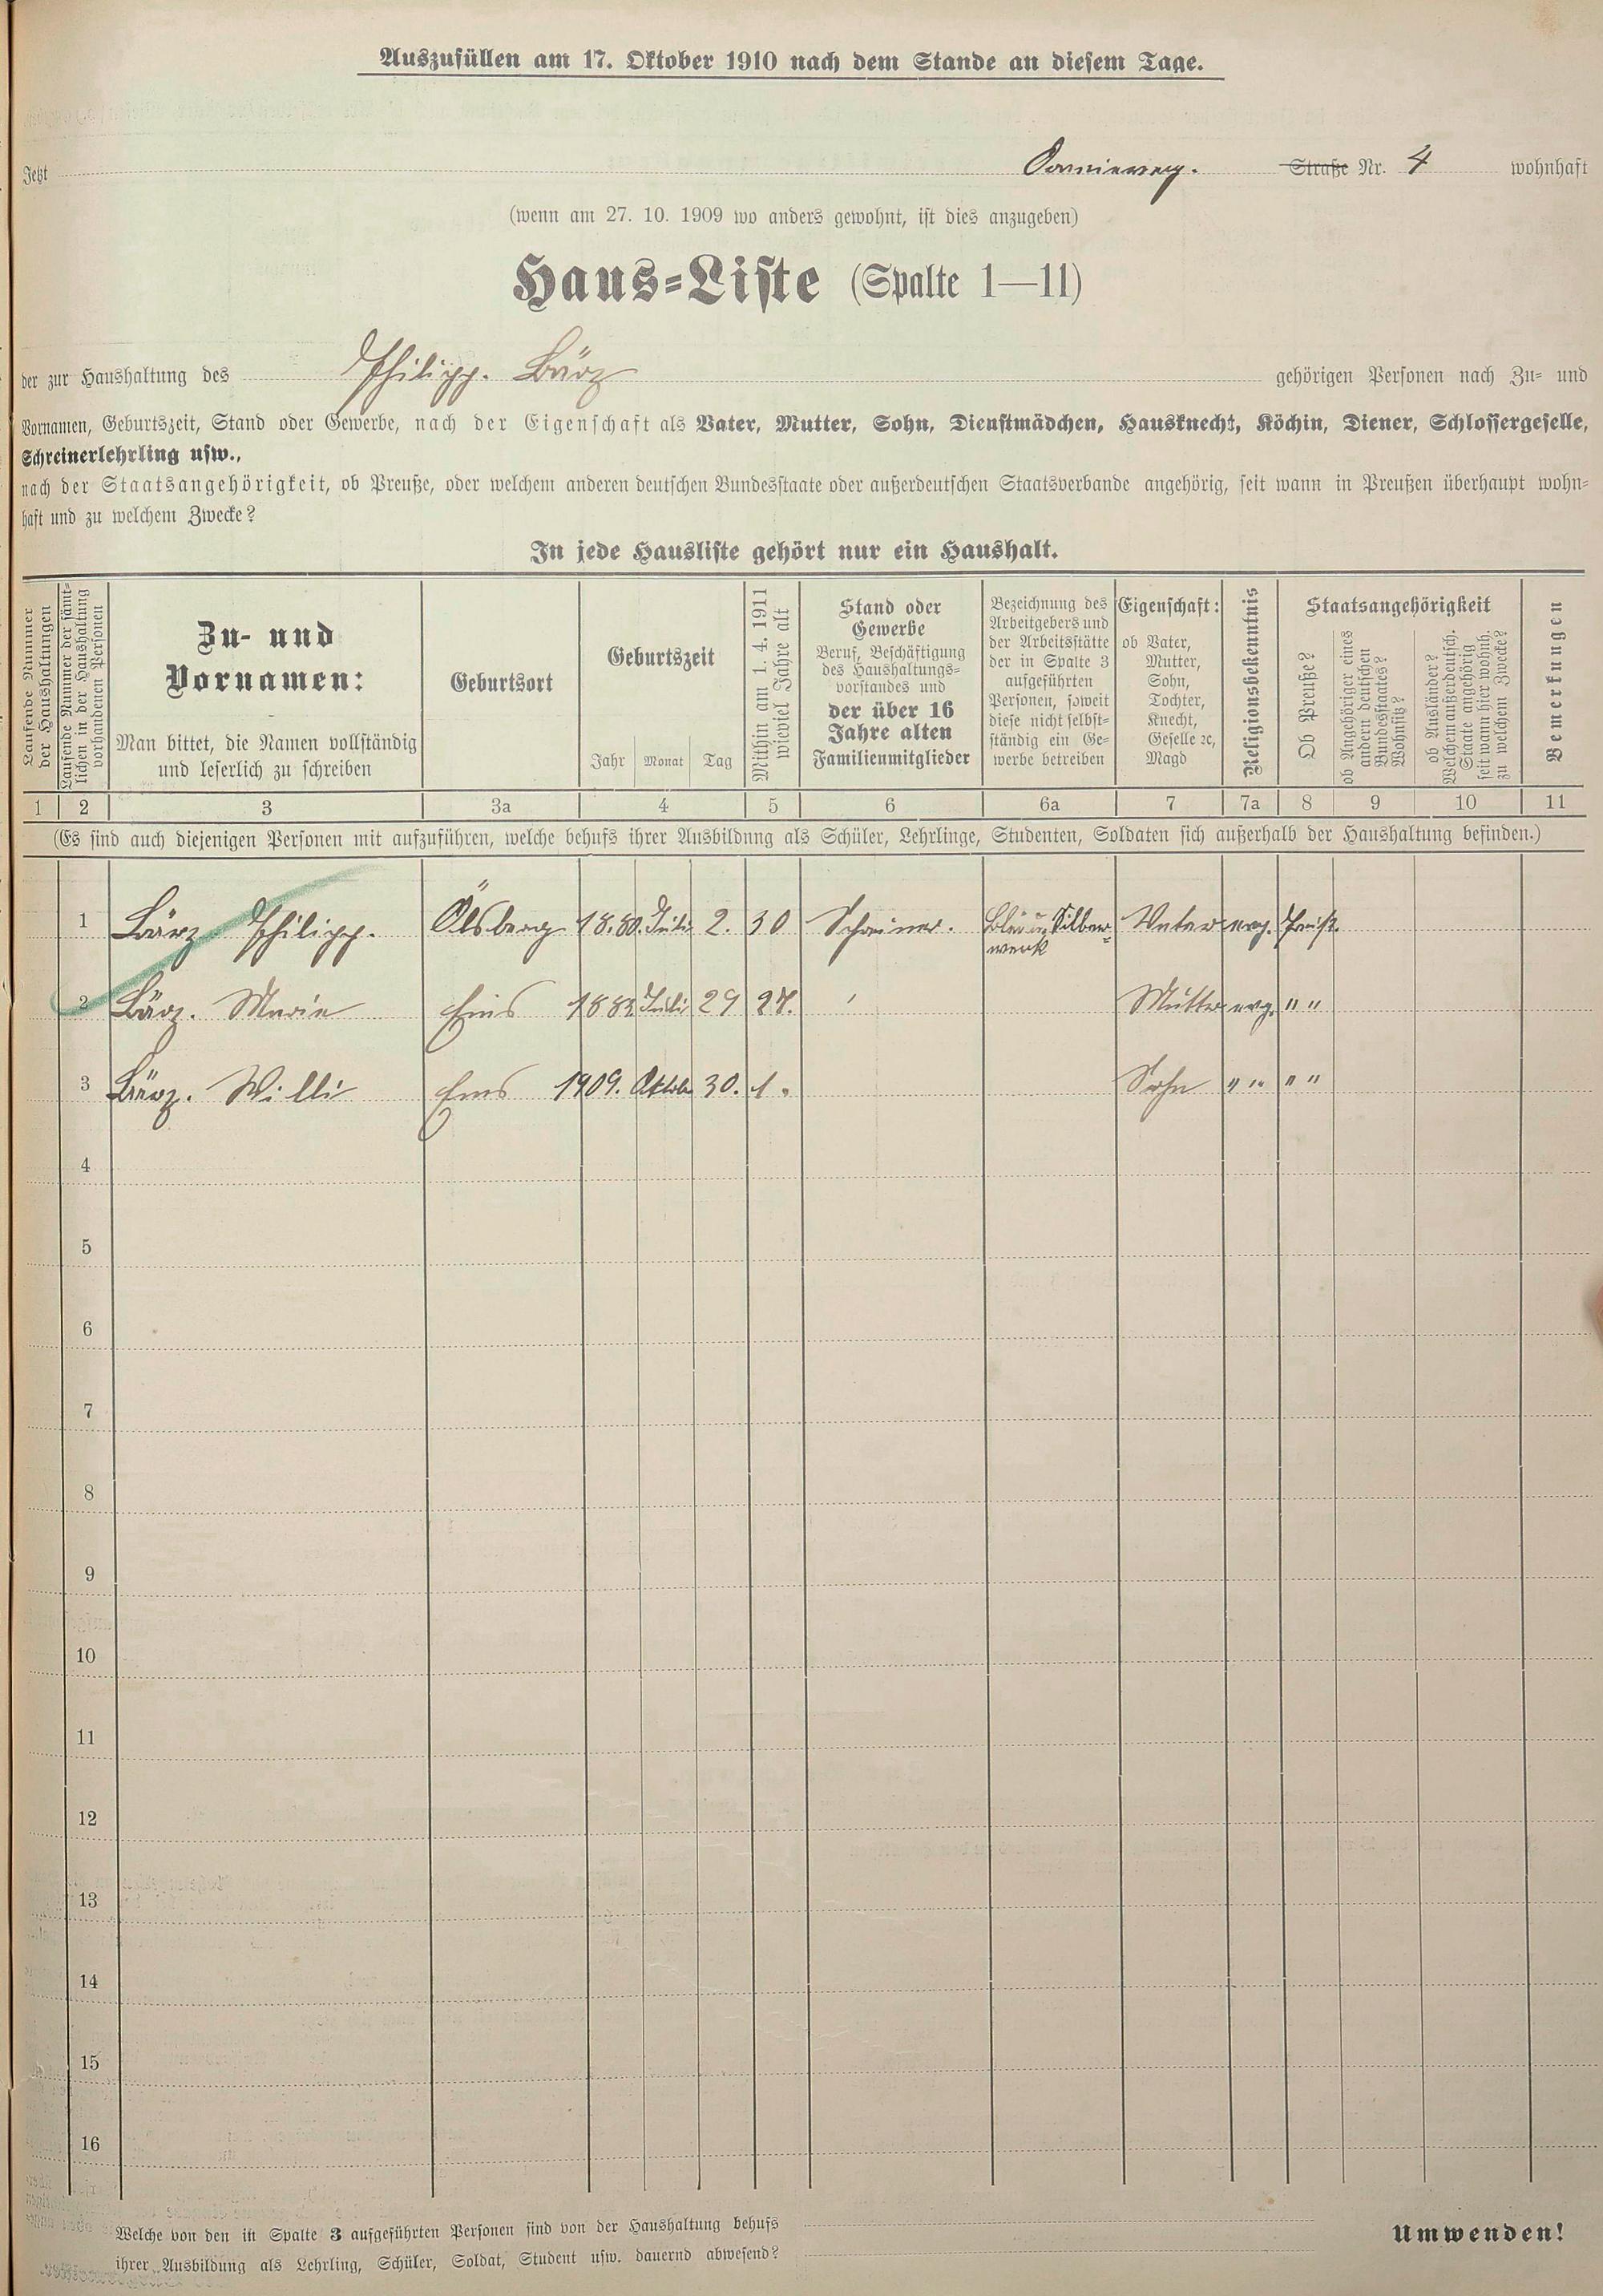 Auszufüllen am 17. Oktober 1910 nach dem Stande an diesem Tage.
Jetzt Straße Nr. 4 wohnhaft
(wenn am 27. 10. 1909 wo anders gewohnt, ist dies anzugeben)
Haus-Liste (Spalte 1—11)
der zur Haushaltung des Philipp. Bärz gehörigen Personen nach Zu- und
Vornamen, Geburtszeit, Stand oder Gewerbe, nach der Eigenschaft als Vater, Mutter, Sohn, Dienstmädchen, Hausknecht, Köchin, Diener, Schlossergeselle,
Schreinerlehrling usw.,
nach der Staatsangehörigkeit, ob Preuße, oder welchem anderen deutschen Bundesstaate oder außerdeutschen Staatsverbande angehörig, seit wann in Preußen überhaupt wohn-
haft und zu welchem Zwecke?
In jede Hausliste gehört nur ein Haushalt.
Laufende Nummer
der Haushaltungen
Laufende Nummer der sämt-
lichen in der Haushaltung
vorhandenen Personen
Zu- und
Vornamen:
Man bittet, die Namen vollständig
und leserlich zu schreiben
Geburtsort
Geburtszeit
Jahr Monat Tag
Mithin am 1. 4. 1911
wieviel Jahre alt
Stand oder
Gewerbe
Beruf, Beschäftigung
des Haushaltungs-
vorstandes und
der über 16
Jahre alten
Familienmitglieder
Bezeichnung des
Arbeitgebers und
der Arbeitsstätte
der in Spalte 3
aufgeführten
Personen, soweit
diese nicht selbst-
ständig ein Ge-
werbe betreiben
Eigenschaft:
ob Vater,
Mutter,
Sohn,
Tochter,
Knecht,
Geselle ꝛc,
Magd
Religionsbekenntnis
Staatsangehörigkeit
Ob Preuße?
ob Angehöriger eines
andern deutschen
Bundesstaates?
Wohnsitz?
ob Ausländer?
Welchem außerdeutsch.
Staate angehörig
seit wann hier wohnh.
zu welchem Zwecke?
Bemerkungen
1 2 3 3a 4 5 6 6a 7 7a 8 9 10 11
(Es sind auch diejenigen Personen mit aufzuführen, welche behufs ihrer Ausbildung als Schüler, Lehrlinge, Studenten, Soldaten sich außerhalb der Haushaltung befinden.)
1 Bärz Philipp. Ölsberg 18.80. Juli 2. 30 Schreiner. Blei u. Silber- Vater evg. Preuß.
werk
2 Bärz. Marie Ems Juli 29 27. Mutter evg. " "
3 Bärz. Willi Ems 1909. Oktob 30. 1. Sohn " " " "
4
5
6
7
8
9
10
11
12
13
14
15
16
Welche von den in Spalte 3 aufgeführten Personen sind von der Haushaltung behufs
ihrer Ausbildung als Lehrling, Schüler, Soldat, Student usw. dauernd abwesend?
Umwenden!